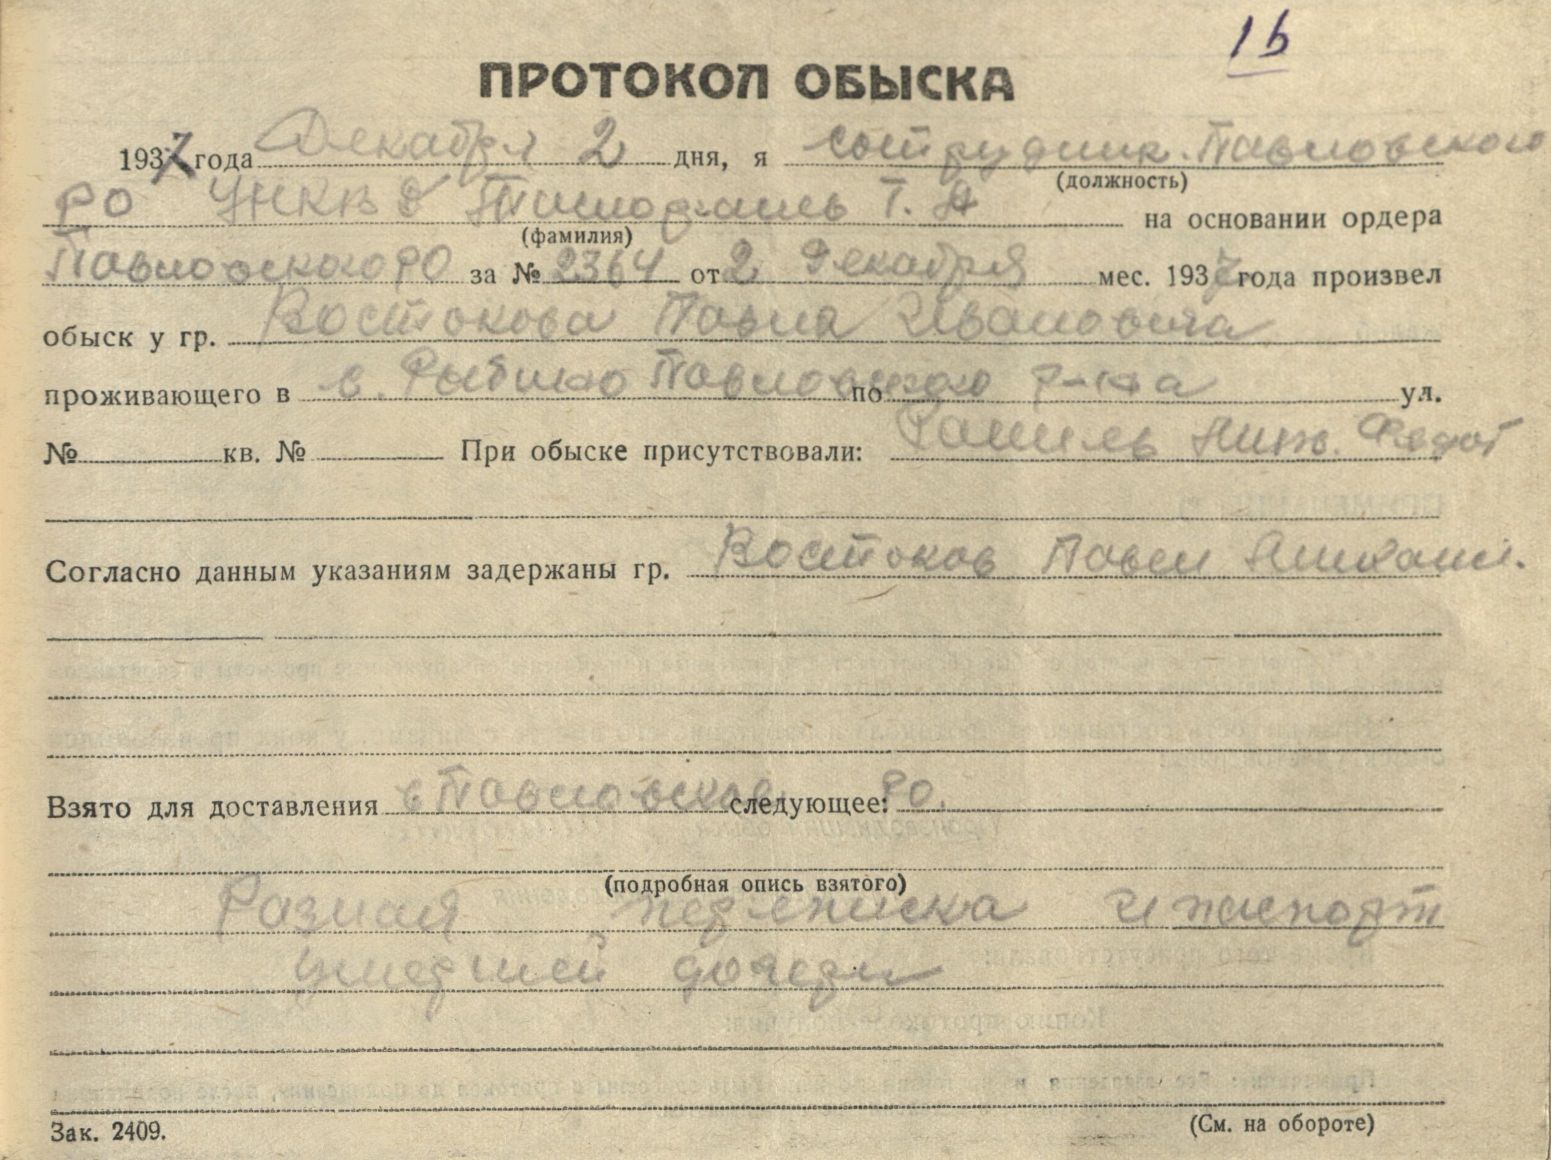 1б
ПРОТОКОЛ ОБЫСКА
1937 года Декабря 2 дня, я сотрудник Павловского
(должность)
РО УНКВД Т. А на основании ордера
(фамилия)
Павловского РО за № 2364 от 2 Декабря мес. 1937 года произвел
обыск у гр. Востокова Павла Ивановича
проживающего в с. Рыбино Павловского р-на по ул.
№ кв. № При обыске присутствовали:
Согласно данным указаниям задержаны гр. Востоков Павел
Взято для доставления в Павловское РО. следующее:
(подробная опись взятого)
Разная переписка и паспорт
умершей дочери
Зак. 2409.
(См. на обороте)